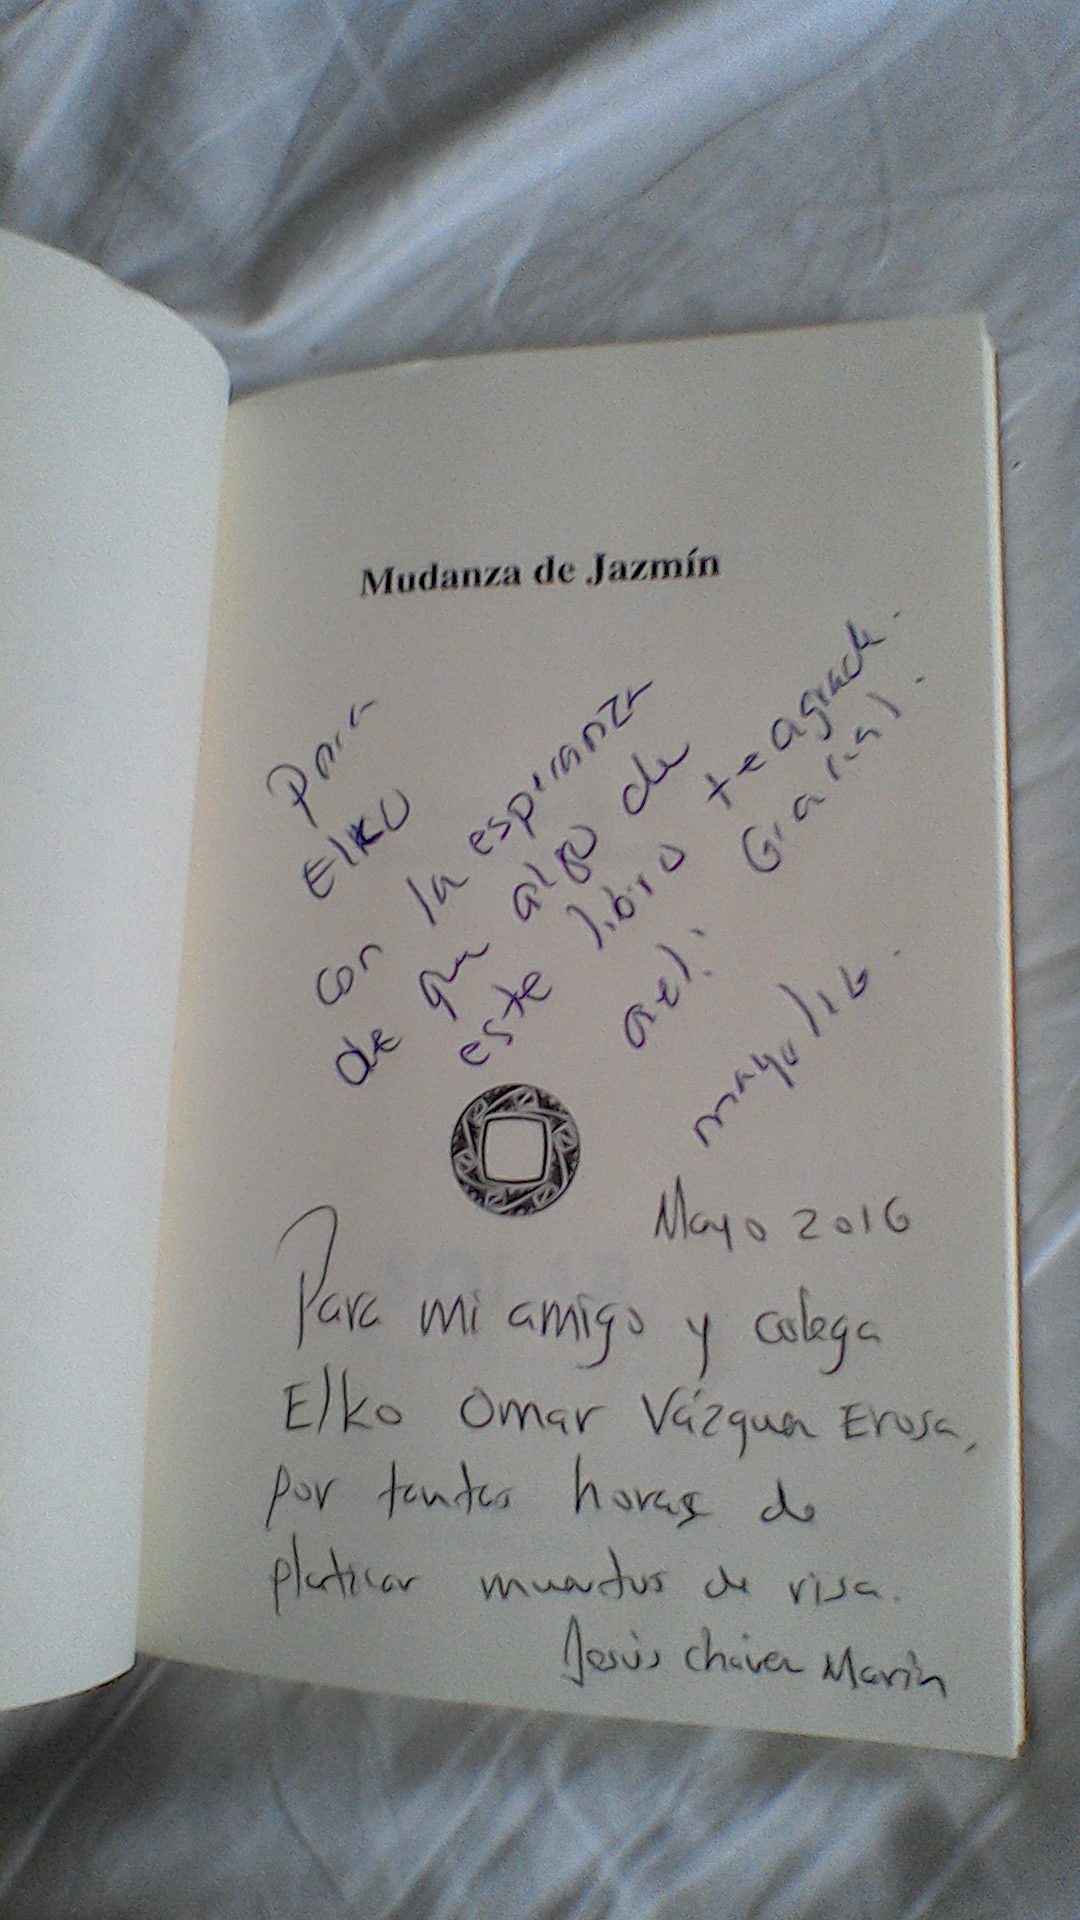 Mudanza de Jazmín
Para
Elko
con la esperanza
de que algo de
este libro te agrade.
Gracias.
mayo/16.
Mayo 2016
Para mi amigo y colega
Elko Omar Vázquez Erosa,
por tantas horas de
platicar muertos de risa.
Jesús Chávez Marín